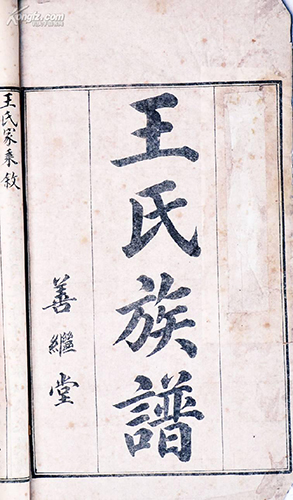 王氏族譜
善繼堂
王氏家乘敘
Kongfz.com